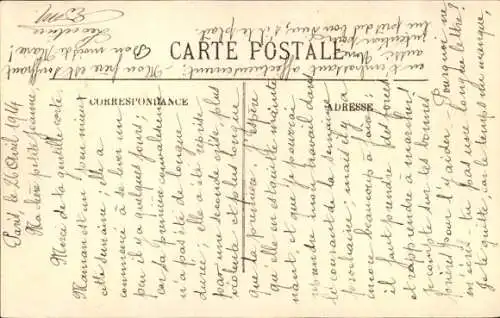 CARTE POSTALE
CORRESPONDANCE
ADRESSE
Paris, le 26 Avril 1914
Ma chère petite Jeanne,
Merci de ta gentille carte.
Maman est un peu mieux
cette semaine ; elle a
commencé à se lever un
peu il y a quelques jours ;
car la première convalescence
n'a pas été de longue
durée ; elle a été reprise
par une seconde crise plus
violente et plus longue
que la première. J'espère
qu'elle en est quitte mainte
nant, et que je pourrai
reprendre mon travail dans
le courant de la semaine
prochaine ; mais il y a
encore beaucoup à faire ;
il faut prendre des forces
et rapprendre à marcher !
Je compte sur tes bonnes
prières pour l'y aider. Pourquoi ne
m'écris-tu pas une longue lettre ?
Je te quitte, car le temps me manque,
en t'embrassant affectueusement.
Mon frère est
Bon mois de Marie !